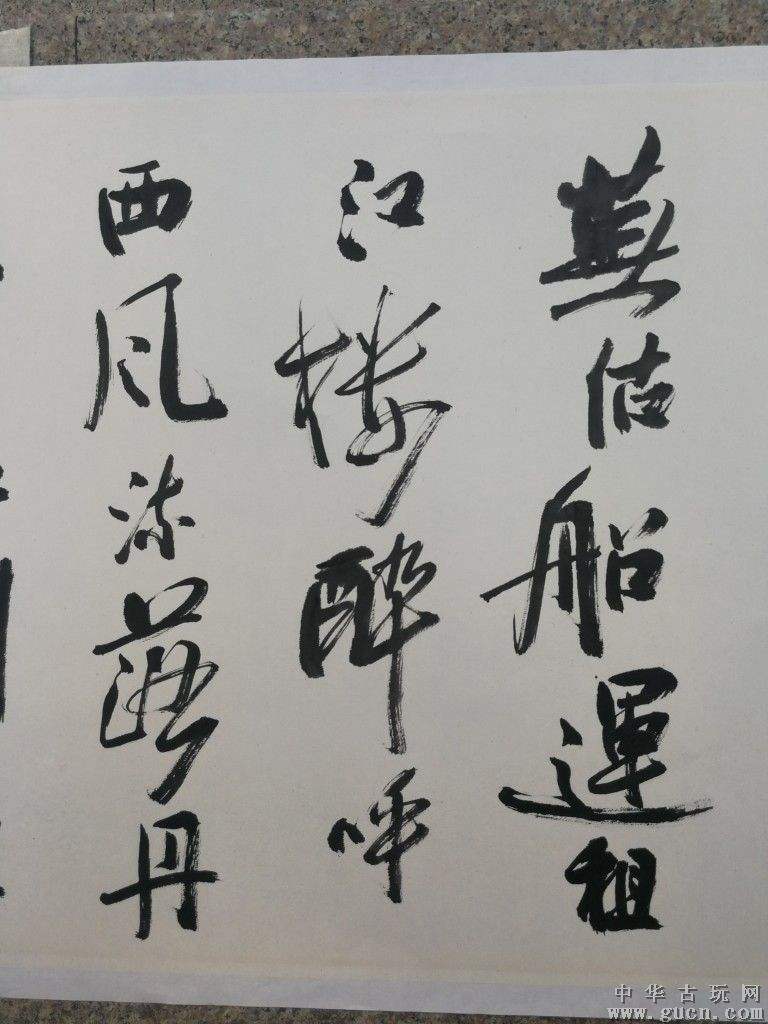 蕪估船運租
江楼醉呼
西风流丹
中华古玩网
www.gucn.com